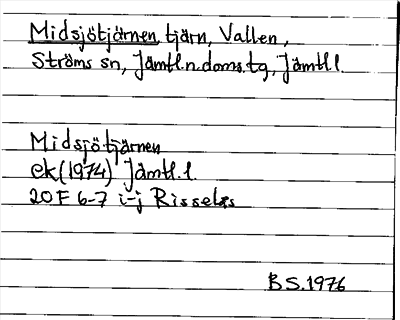 Midsjötjärnen tjärn, Vallen,
Ströms sn, Jämtl.n.doms.tg, Jämtl.l.
Midsjötjärnen
ek (1974) Jämtl.l.
20F 6-7 i-j Risselås
BS.1976